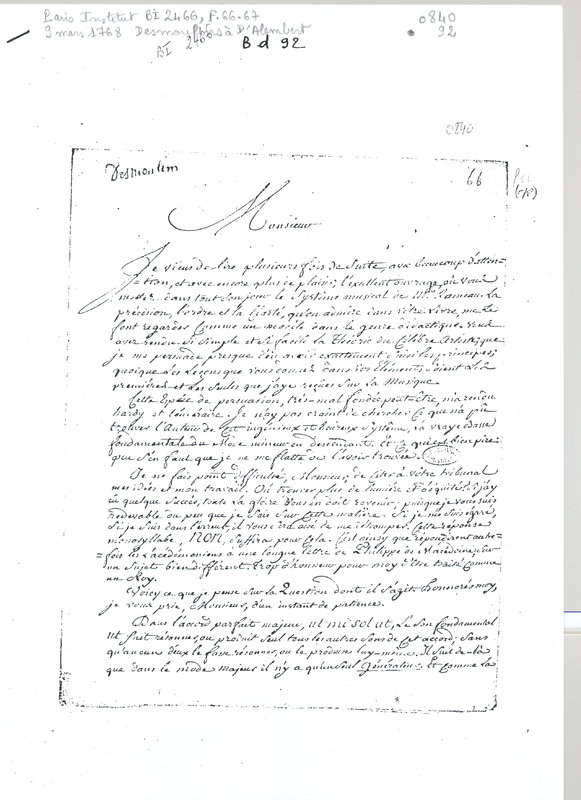 Paris Institut BI 2466, F. 66-67
0840
9 mars 1768 Desmoulins à D'Alembert
92
BI 2466
B d 92
0840
Desmoulins
66
Monsieur
Je viens de lire plusieurs fois de suite, avec beaucoup d'atten=
=tion, et avec encore plus de plaisir, l'excellent ouvrage, où vous
mettez dans tout son jour le Systême musical de Mr. Rameau. La
précision, l'ordre et la clarté, qu'on admire dans vôtre Livre, me le
font regarder comme un modele dans le genre didactique. vous
avez rendu si simple et si facile la Théorie du Célébre Artiste, que
je me persuade presque d'en avoir exactement saisi les principes;
quoique les Leçons que vous donnez dans vos Eléments soient les
premieres et les seules que j'aye reçues sur la Musique.
Cette Espéce de persuasion, très-mal fondée peut-être, m'a rendu
hardy et téméraire. Je n'ay pas craint de chercher ce que n'a pû
trouver l'Auteur de cet ingénieux et heureux Systême, la vraye Basse
fondamentale du Mode mineur en descendant. Et ce qui est bien pire
que s'en faut que je ne me flatte de l'avoir trouvée.
Je ne fais point difficulté, Monsieur, de citer à vôtre tribunal
mes idées et mon travail. Où trouver plus de lumiere et d'équité? Si j'ay
eu quelque succès, toute la gloire vous en doit revenir: puisque je vous suis
redevable du peu que je sais sur cette matiere. Si je me suis égaré,
si je suis dans l'erreur, il vous sera aisé de me détromper. Cette réponse
monosyllabe, NON, suffira pour cela. C'est ainsy que répondirent autre=
=fois les Lacédémoniens à une longue lettre de Philippe de Macédoine, sur
un sujet bien différent. Trop d'honneur pour moy d'être traité comme
un Roy.
Voicy ce que je pense sur la Question dont il s'agit: honnorés moy,
je vous prie, Monsieur, d'un instant de patience.
Dans l'accord parfait majeur, ut mi sol ut, le son fondamental
ut fait résonner, ou produit seul tous les autres sons de cet accord; sans
qu'aucun d'eux le fasse résonner, ou le produise luy-même. Il suit de-là
que dans le mode majeur il n'y a qu'un seul générateur. Et comme la